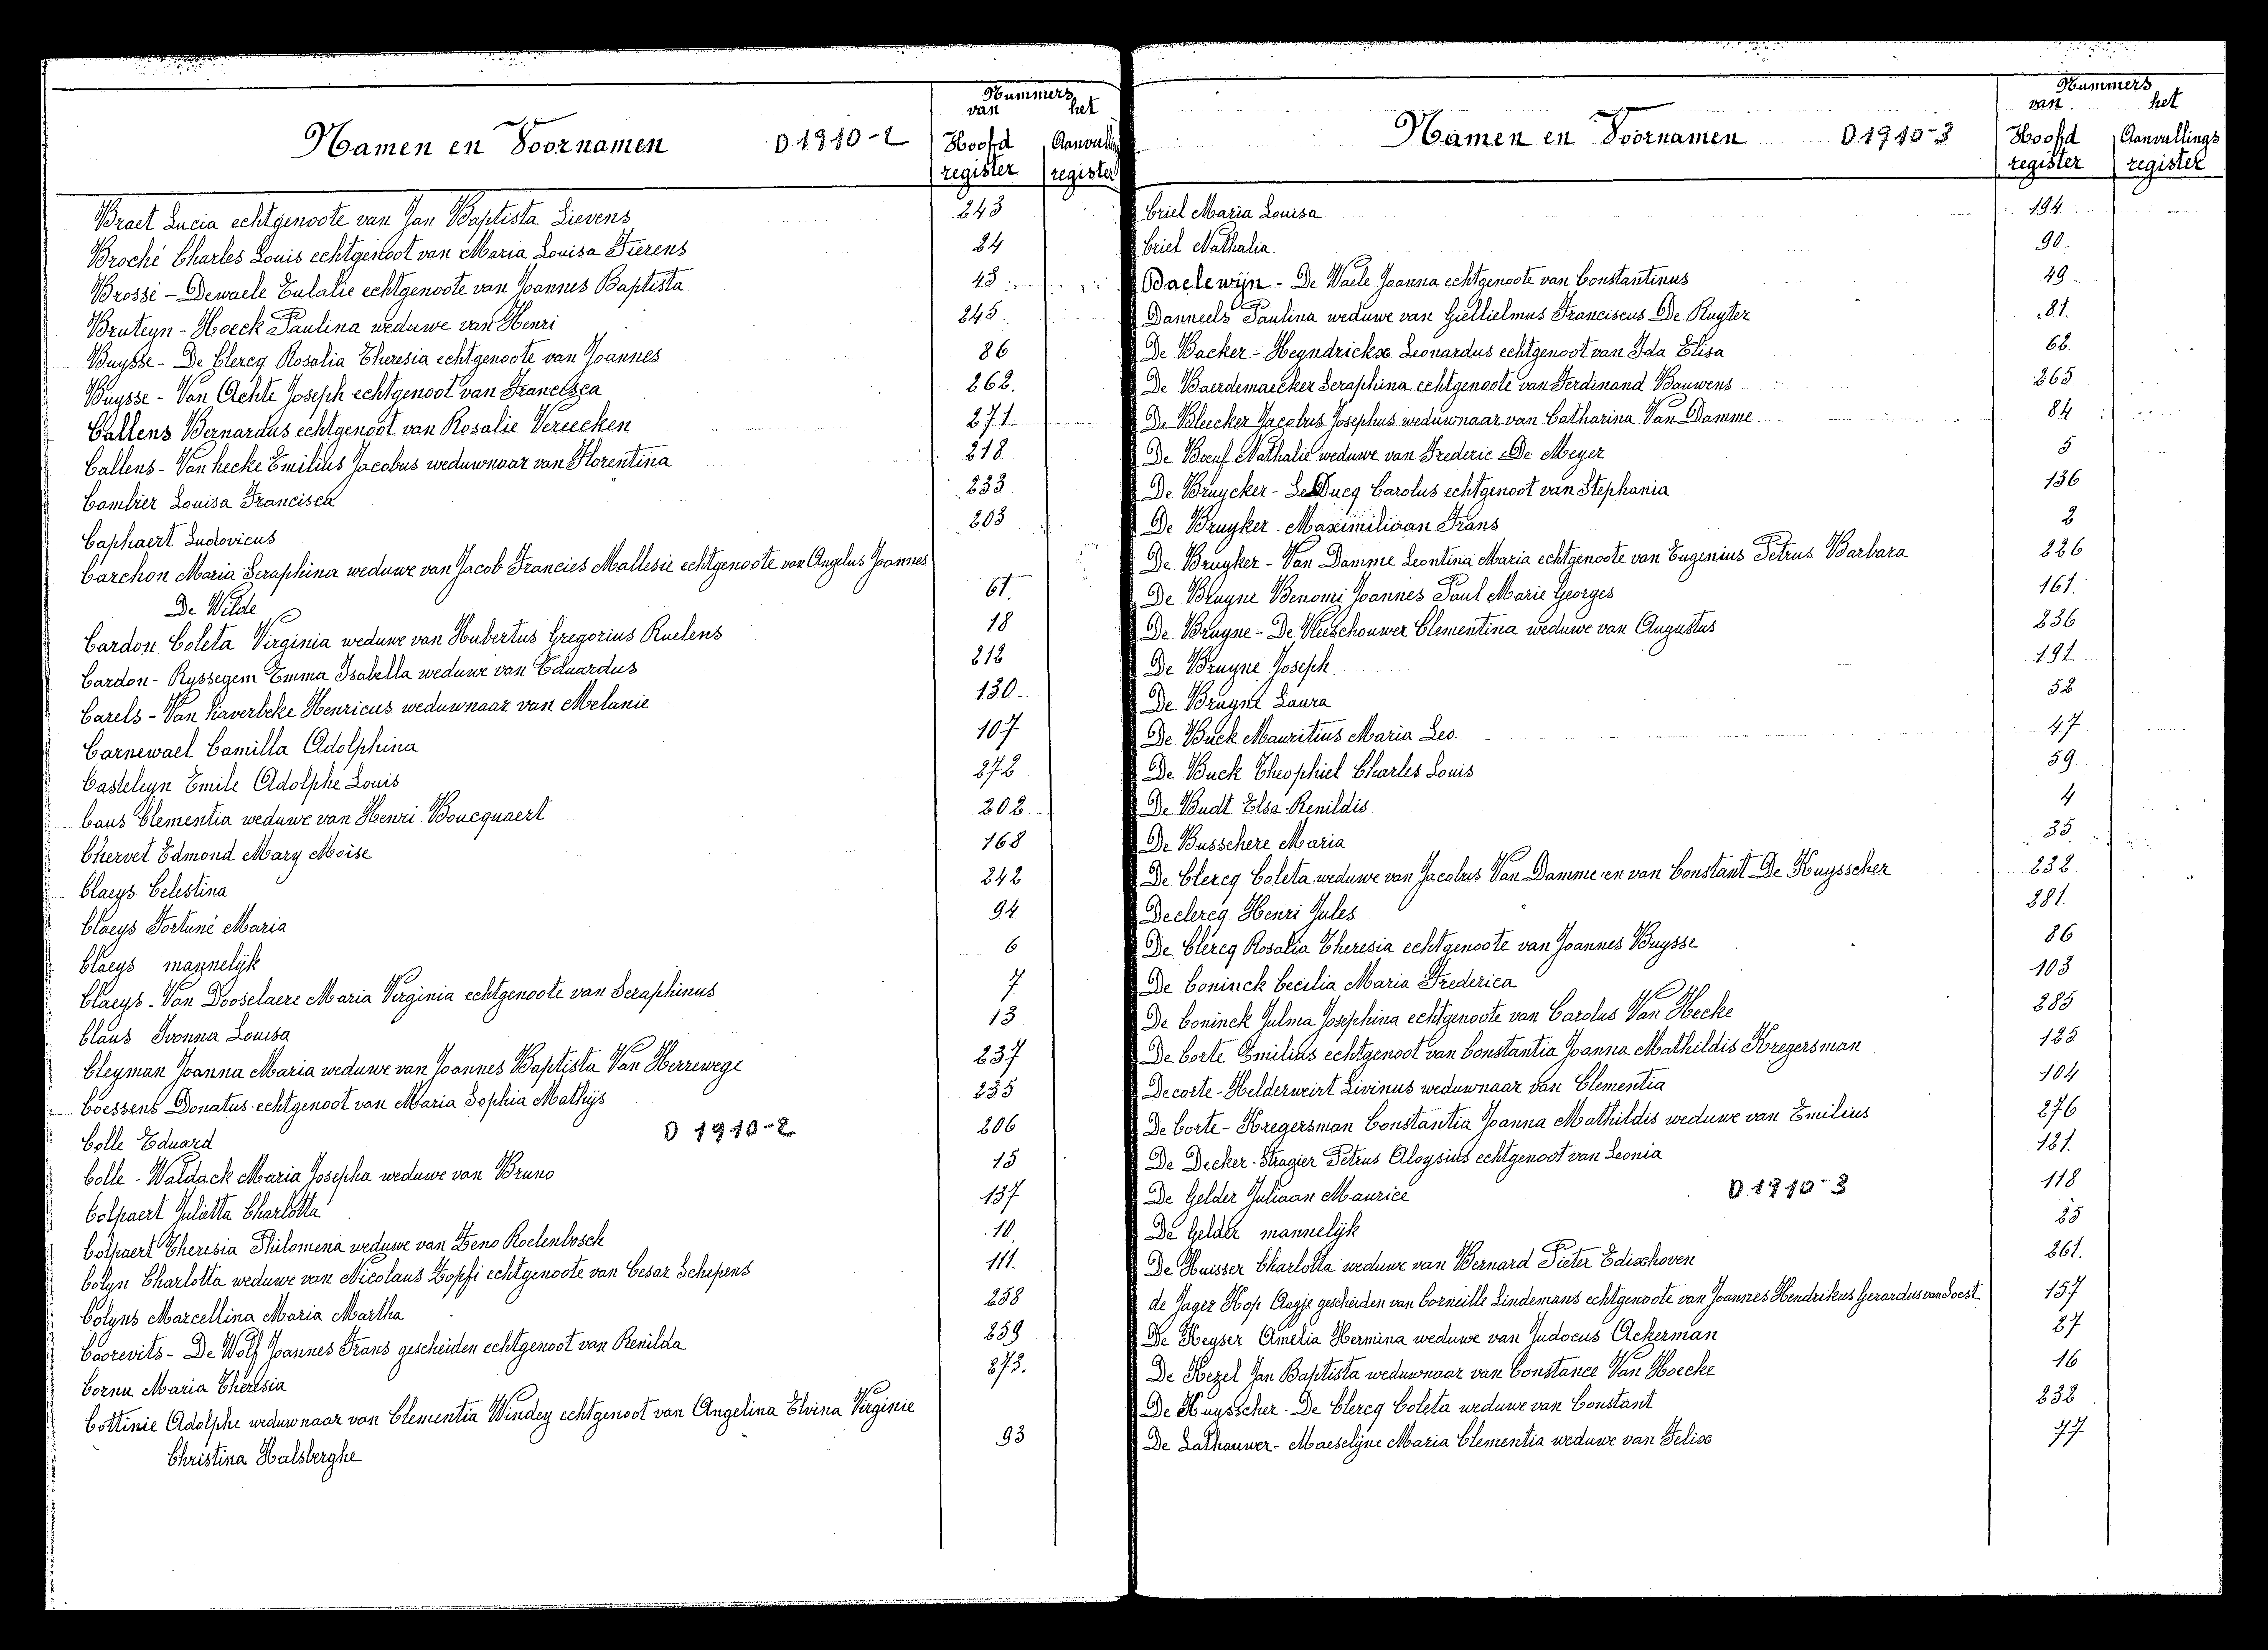 Namen en Voornamen D 1910-2
Nummers
van het
Hoofd Aanvullings
register register
Braet Lucia echtgenoote van Jan Baptista Lievens 243
Broché Charles Louis echtgenoot van Maria Louisa Fierens 24
Brossé - Dewaele Eulalie echtgenoote van Joannes Baptista 43
Bruteyn - Hoeck Paulina weduwe van Henri 245
Buysse - De Clercq Rosalia Theresia echtgenoote van Joannes 86
Buysse - Van Achte Joseph echtgenoot van Francisca 262.
Callens Bernardus echtgenoot van Rosalie Vereecken 271.
Callens - Van hecke Emilius Jacobus weduwnaar van Florentina 218
Cambier Louisa Francisca 233
Caphaert Ludovicus 203
Carchon Maria Seraphina weduwe van Jacob Francies Mallesie echtgenoote van Angelus Joannes
De Wilde 61.
Cardon Coleta Virginia weduwe van Hubertus Gregorius Ruelens 18
Cardon - Ryssegem Emma Isabella weduwe van Eduardus 212
Carels - Van haverbeke Henricus weduwnaar van Melanie 130
Carnewael Camilla Adolphina 107
Casteleyn Emile Adolphe Louis 272
Caus Clementia weduwe van Henri Boucquaert 202
Chervet Edmond Mary Moise 168
Claeys Celestina 242
Claeys Fortuné Maria 94
Claeys mannelijk 6
Claeys - Van Dooselaere Maria Virginia echtgenoote van Seraphinus 7
Claus Ivonna Louisa 13
Cleyman Joanna Maria weduwe van Joannes Baptista Van Herrewege 237
Coessens Donatus echtgenoot van Maria Sophia Mathijs 235
Colle Eduard 206
D 1910-2
Colle - Waldack Maria Josepha weduwe van Bruno 15
Colpaert Julietta Charlotta 137
Colpaert Theresia Philomena weduwe van Zeno Roelenbosch 10
Colyn Charlotta weduwe van Nicolaus Zopfi echtgenoote van Cesar Schepens 111.
Colyns Marcellina Maria Martha 258
Coorevits - De Wolf Joannes Frans gescheiden echtgenoot van Renilda 259
Cornu Maria Theresia 273.
Cottinie Adolphe weduwnaar van Clementia Windey echtgenoot van Angelina Elvina Virginie
Christina Halsberghe 93
Namen en Voornamen D 1910-3
Nummers
van het
Hoofd Aanvullings
register register
Criel Maria Louisa 194
Criel Nathalia 90
Daelewijn - De Waele Joanna echtgenoote van Constantinus 49
Danneels Paulina weduwe van Giellielmus Franciscus De Ruyter 81.
De Backer - Heyndrickx Leonardus echtgenoot van Ida Elisa 62.
De Baerdemaecker Seraphina echtgenoote van Ferdinand Bauwens 265
De Bleecker Jacobus Josephus weduwnaar van Catharina Van Damme 84
De Boeuf Nathalie weduwe van Frederic De Meyer 5
De Bruycker - Le Ducq Carolus echtgenoot van Stephania 136
De Bruyker Maximiliaan Frans 2
De Bruyker - Van Damme Leontina Maria echtgenoote van Eugenius Petrus Barbara 226
De Bruyne Benomi Joannes Paul Marie Georges 161.
De Bruyne - De Vleeschouwer Clementina weduwe van Augustus 236
De Bruyne Joseph 191.
De Bruyne Laura 52
De Buck Mauritius Maria Leo. 47
De Buck Theophiel Charles Louis 59
De Budt Elsa Renildis 4
De Busschere Maria 35
De Clercq Coleta weduwe van Jacobus Van Damme en van Constant De Huysscher 232
Declercq Henri Jules 281.
De Clercq Rosalia Theresia echtgenoote van Joannes Buysse 86
De Coninck Cecilia Maria Frederica 103
De Coninck Julma Josephina echtgenoote van Carolus Van Hecke 285
De Corte Emilius echtgenoot van Constantia Joanna Mathildis Kregersman 125
Decorte - Helderweirt Livinus weduwnaar van Clementia 104
De Corte - Kregersman Constantia Joanna Mathildis weduwe van Emilius 276
De Decker - Stragier Petrus Aloysius echtgenoot van Leonia 121.
De Gelder Juliaan Maurice 118
D 1910-3
De Gelder mannelijk 25
De Huisser Charlotta weduwe van Bernard Pieter Edixhoven 261.
de Jager Kop Aagje gescheiden van Corneille Lindemans echtgenoote van Joannes Hendrikus Gerardus van Soest 157
De Keyser Amelia Hermina weduwe van Judocus Ackerman 27
De Kezel Jan Baptista weduwnaar van Constance Van Hoecke 16
De Huysscher - De Clercq Coleta weduwe van Constant 232
De Lathauwer - Maeselijne Maria Clementia weduwe van Felix 77